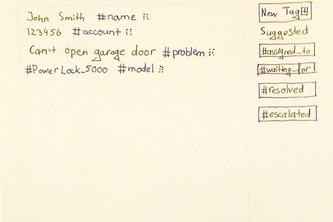 John Smith #name
123456 #account
Can't open garage door #problem
#PowerLock_5000 #model
New Tag
Suggested
#assigned_to
#waiting_for
#resolved
#escalated